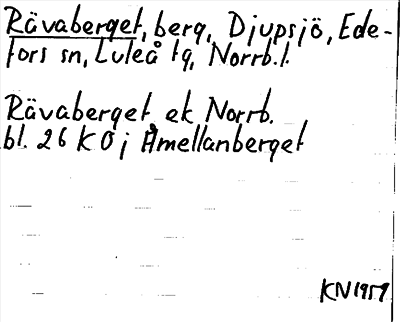 Rävaberget, berg, Djupsjö, Ede-
fors sn, Luleå tg, Norrb. l.
Rävaberget ek Norrb.
bl. 26 K O j Åmellanberget
KN 1957